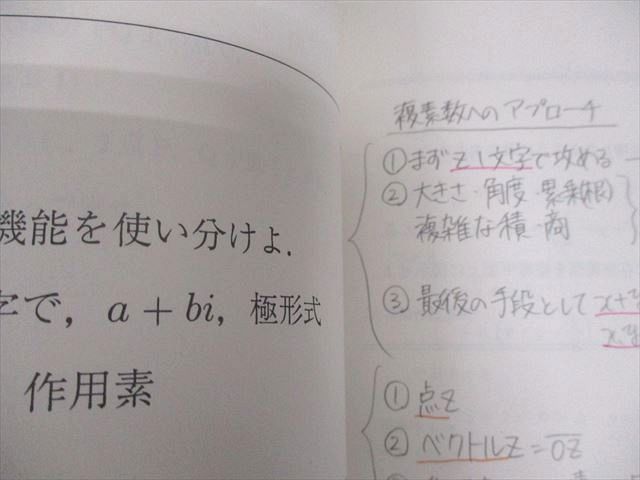 機能を使い分けよ.
字で, a + bi, 極形式
作用素
複素数へのアプローチ
① まず z 1文字で攻める
② 大きさ・角度・累乗(根)
複雑な積・商
③ 最後の手段として x+
x,y
① 点z
② ベクトルz = OZ